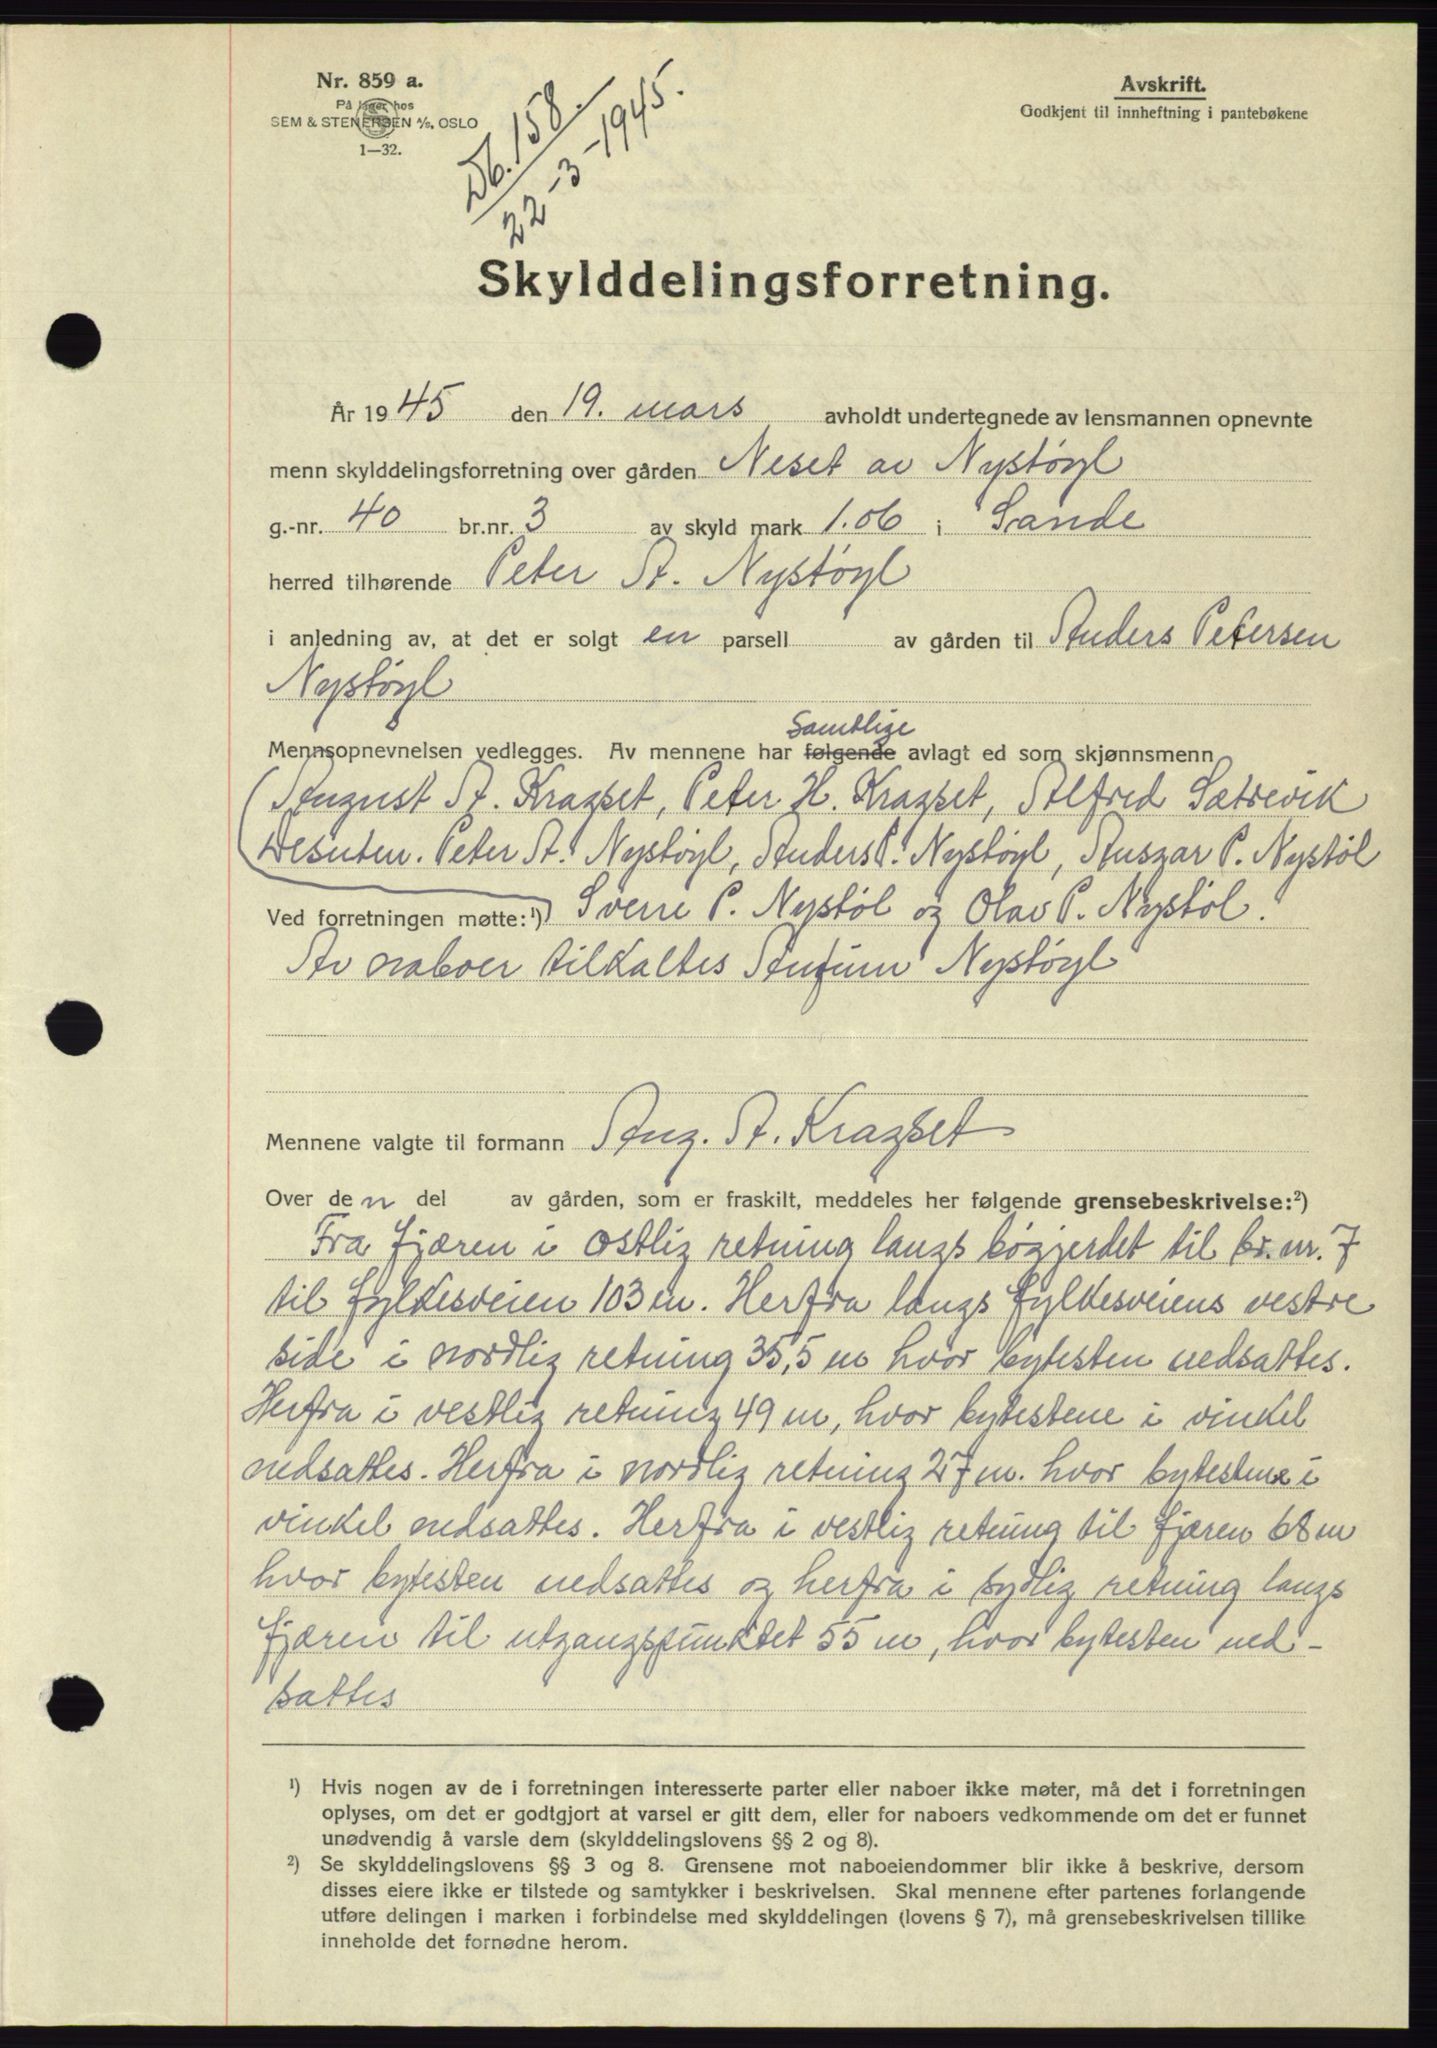 Nr. 859 a.
På lager hos
SEM & STENERSEN A/S, OSLO
1—32.
Db. 158
22-3-1945.
Avskrift.
Godkjent til innheftning i pantebøkene
Skylddelingsforretning.
År 1945 den 19. mars avholdt undertegnede av lensmannen opnevnte
menn skylddelingsforretning over gården Neset av Nystøyl
g.-nr. 40 br.nr. 3 av skyld mark 1.06 i Sande
herred tilhørende Peter A. Nystøyl
i anledning av, at det er solgt en parsell av gården til Anders Petersen
Nystøyl
Samtlige
Mennsopnevnelsen vedlegges. Av mennene har følgende avlagt ed som skjønnsmenn
August A. Kragset, Peter H. Kragset, Alfred Sætrevik
Desuten. Peter A. Nystøyl, Anders P. Nystøyl, Ansgar P. Nystøl
Ved forretningen møtte:¹) Sverre P. Nystøl og Olav P. Nystøl.
Av naboer tilkaltes Nystøyl
Mennene valgte til formann Aug. A. Kragset
Over den del av gården, som er fraskilt, meddeles her følgende grensebeskrivelse:²)
Fra fjæren i østlig retning langs bøgjerdet til br. nr. 7
til fylkesveien 103 m. Herfra langs fylkesveiens vestre
side i nordlig retning 35,5 m hvor bytesten nedsattes.
Herfra i vestlig retning 49 m, hvor bytestene i vinkel
nedsattes. Herfra i nordlig retning 27 m. hvor bytestene i
vinkel nedsattes. Herfra i vestlig retning til fjæren 68 m
hvor bytesten nedsattes og herfra i sydlig retning langs
fjæren til utgangspunktet 55 m, hvor bytesten ned-
sattes
¹) Hvis nogen av de i forretningen interesserte parter eller naboer ikke møter, må det i forretningen
oplyses, om det er godtgjort at varsel er gitt dem, eller for naboers vedkommende om det er funnet
unødvendig å varsle dem (skylddelingslovens §§ 2 og 8).
²) Se skylddelingslovens §§ 3 og 8. Grensene mot naboeiendommer blir ikke å beskrive, dersom
disses eiere ikke er tilstede og samtykker i beskrivelsen. Skal mennene efter partenes forlangende
utføre delingen i marken i forbindelse med skylddelingen (lovens § 7), må grensebeskrivelsen tillike
inneholde det fornødne herom.